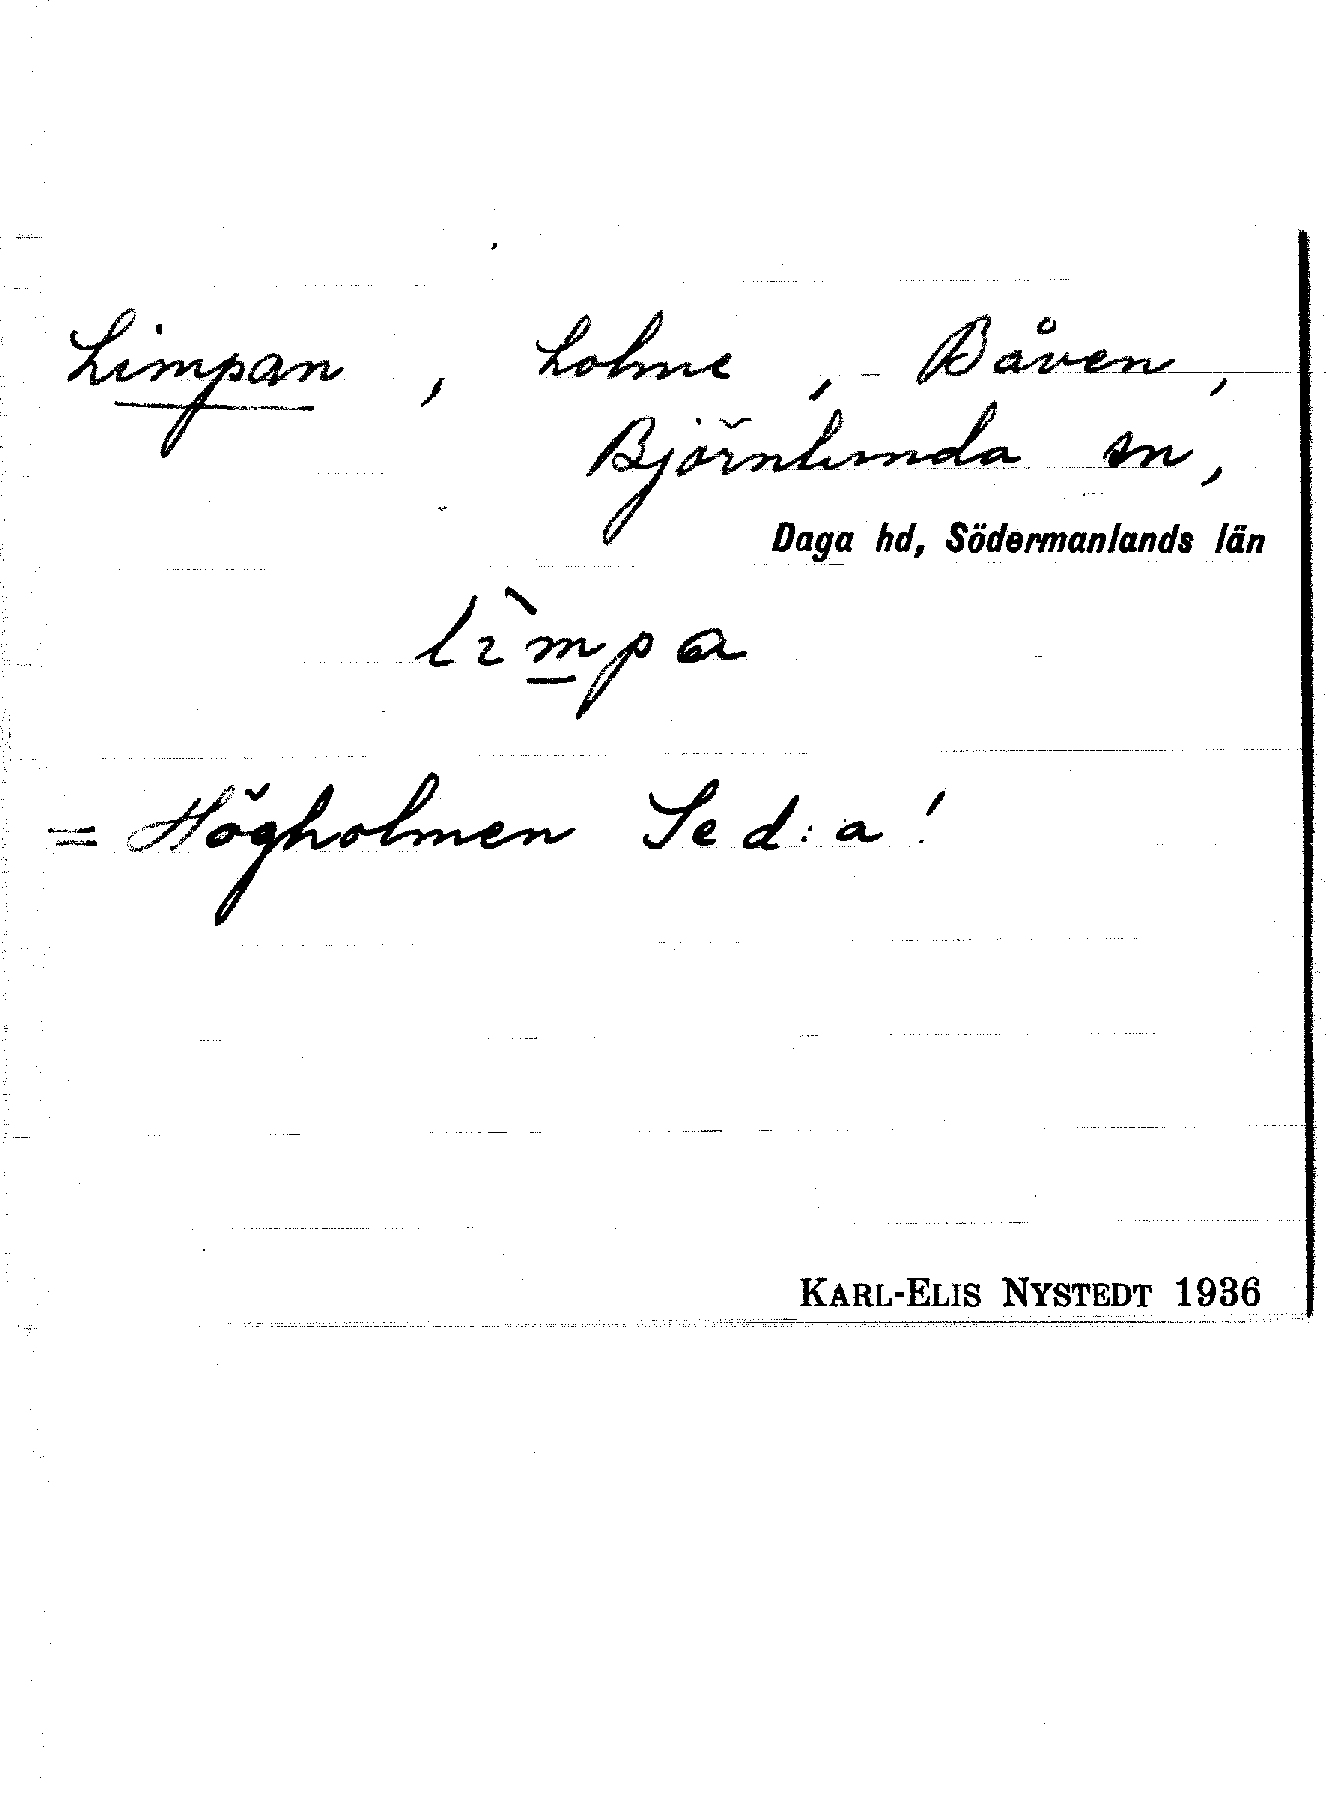 Limpan, holme, Båven,
Björnlunda sn,
Daga hd, Södermanlands län
lìmpa
= Högholmen Se d:a!
KARL-ELIS NYSTEDT 1936